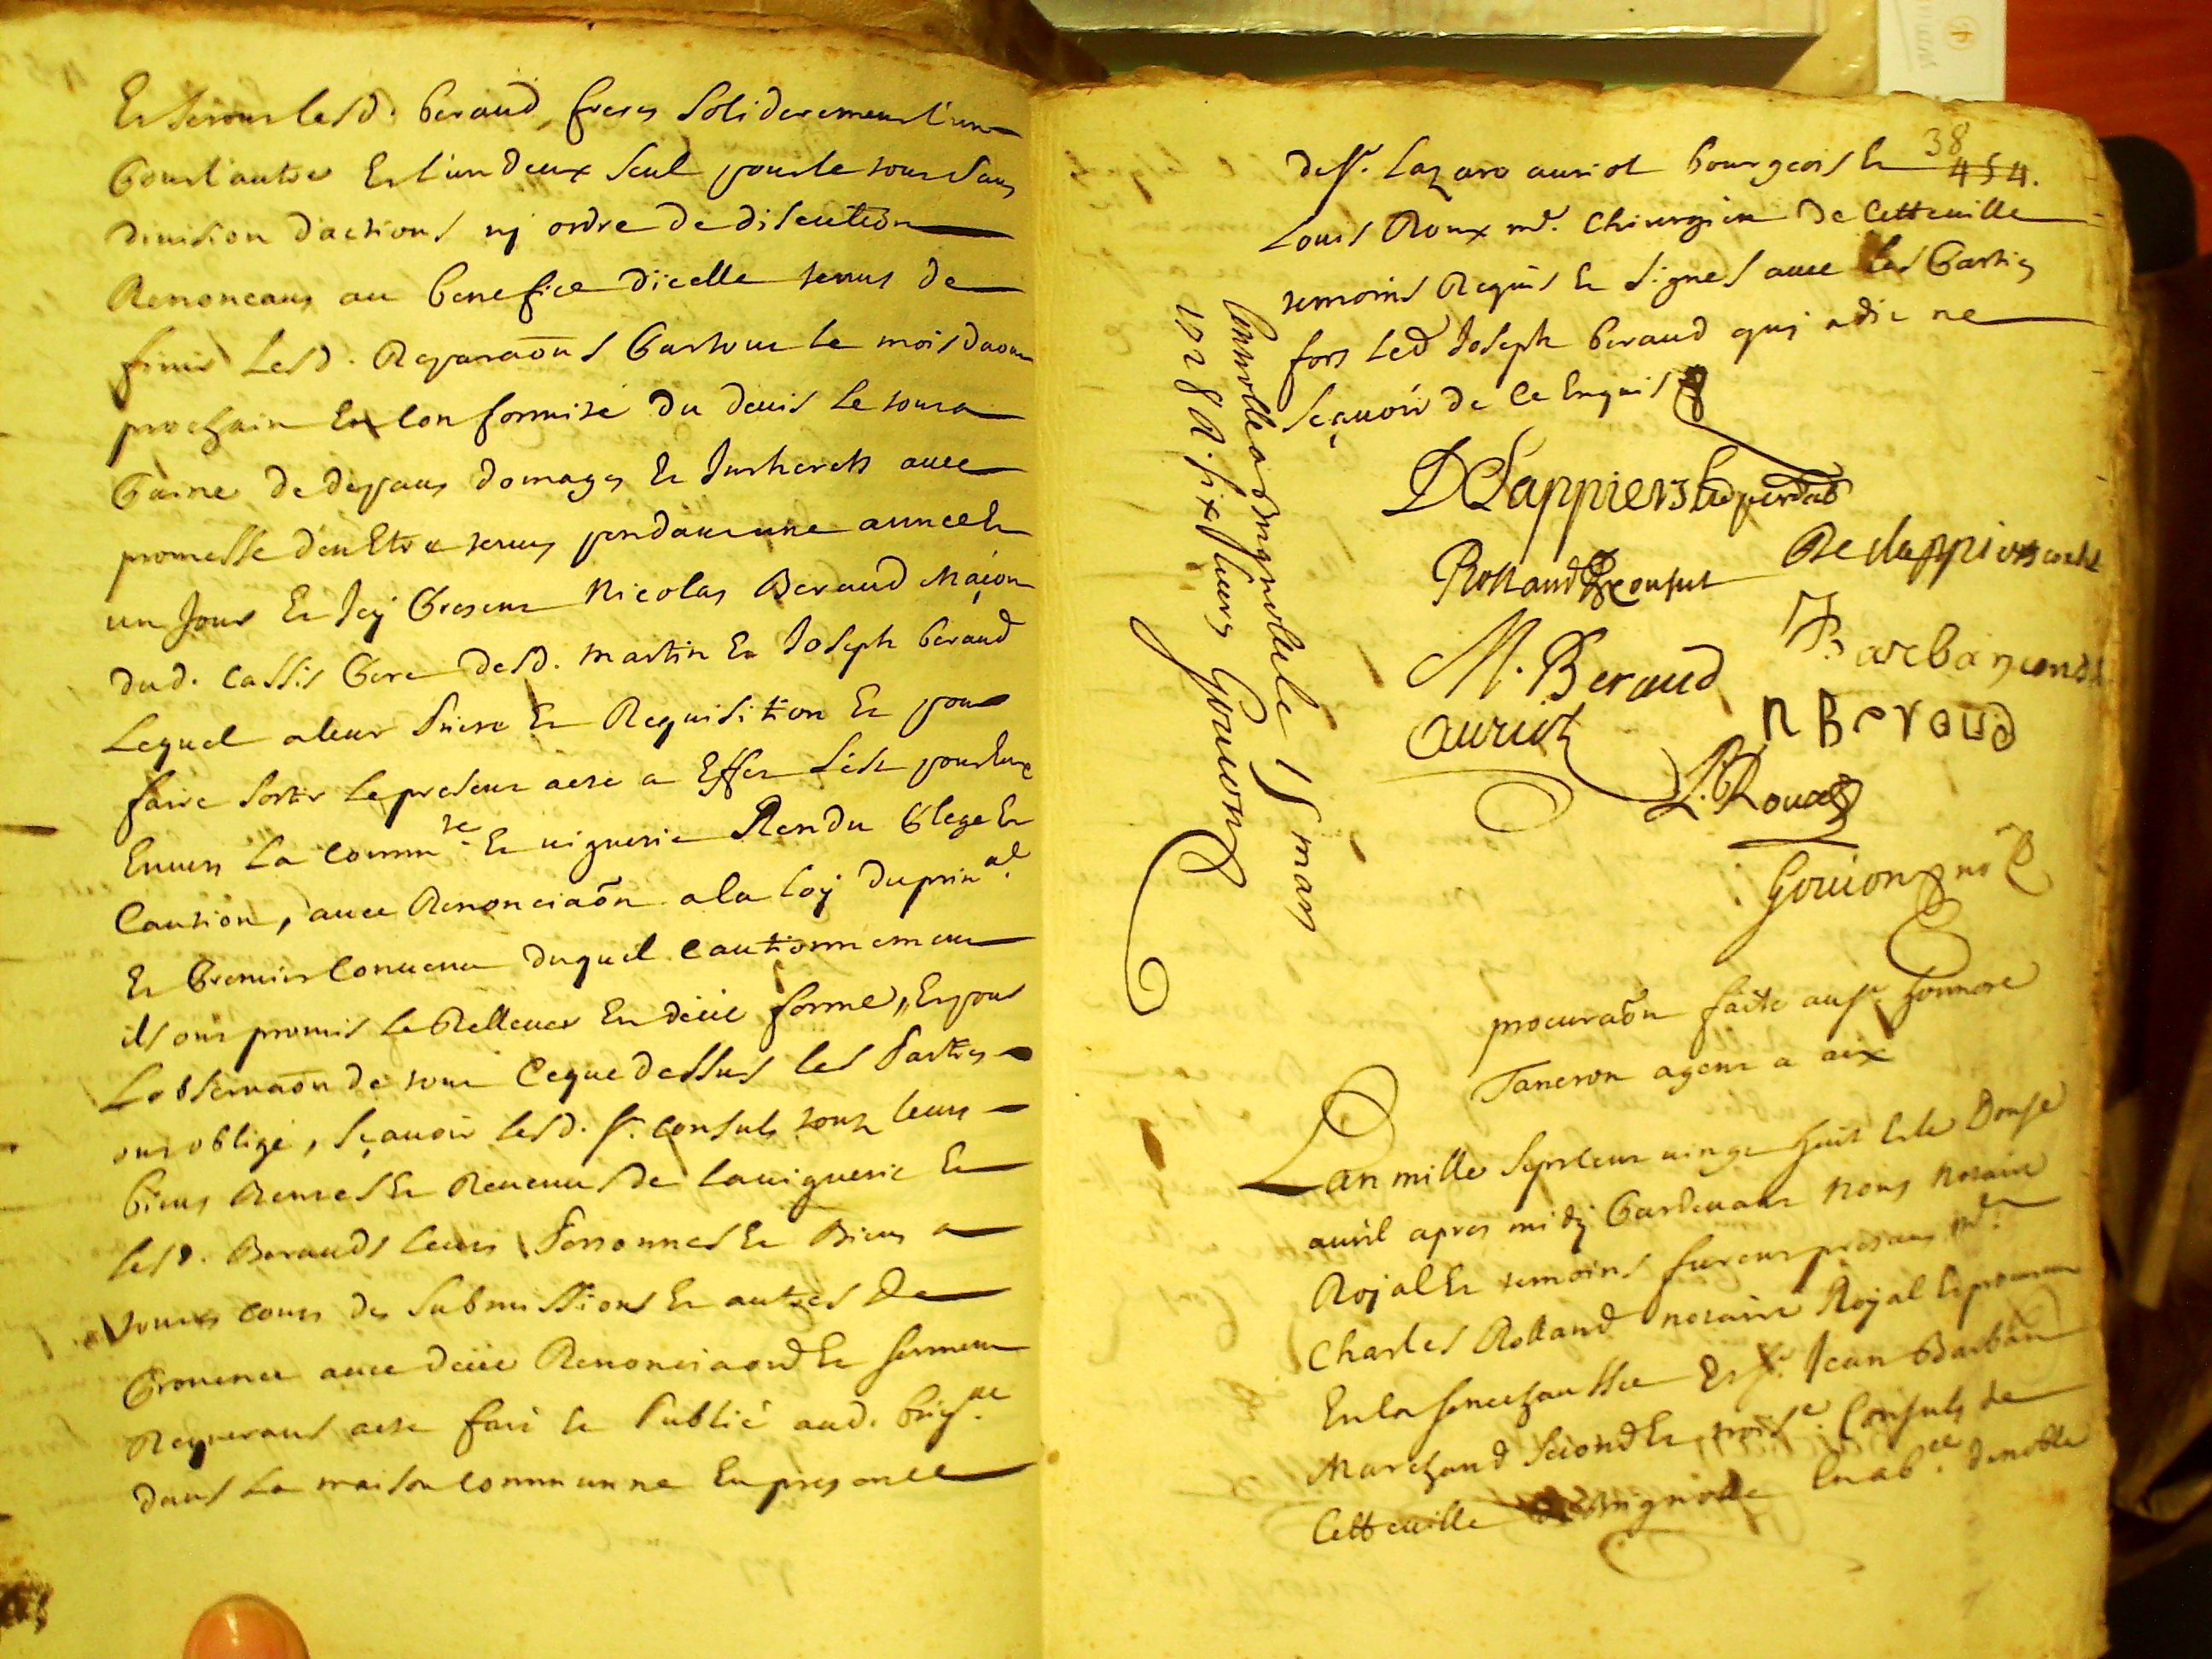 Et seront lesd. beraud freres soliderement l'un
pour l'autre Et l'un deux seul pour le tout sans
division d'actions ny ordre de discution
Renonceans au benefice d'icelle tenus de
finir Lesd. Reparaõns par tout le mois daout
prochain En conformité du devis le tout a
paine de depans domages Et Interests avec
promesse d'en Etre tenus pendant une année Et
un Jour Et Icy present Nicolas Beraud Maçon
dud. Cassis pere desd. martin Et Joseph beraud
Lequel a leur priere Et Requisition Et pour
faire sortir le present acte a Effet s'est pour Eux
Envers La Commté. Et viguerie Rendu plege Et
Caution, avec Renonciaõn a la loy du prinal.
Et premier Convenu duquel cautionnement
ils ont promis le Rellever En deüe forme, Et pour
Lobservaõn de tout Ceque dessus les Parties
ont obligé, sçavoir lesd. Sr. Consuls tous leurs
biens Rentes Et Revenus de la viguerie Et
lesd. Berauds leurs Personnes Et Biens a
toutes cours des submissions Et autres de
provence avec deüe Renonciaon Et serment
Requerant acte fait Et Publié aud. brigle.
dans La maison commune En presence
38
454.
de Sr. Lazare auriol bourgeois Et
Louis Roux md. Chirurgien de Cette ville
temoins Requis Et signes avec les parties
fors led Joseph beraud quy a dit ne
sçavoir de Ce Enquis
Rolland consul
De clappiers
M. Beraud
Barbaz
auriol
N Beraud
L. Roux
Gouion no
Controllé a brignolle le 15 mars
1728 R. six livres Gouion
procuraõn faite au Sr. honnore
Taneron agent a aix
L'an mille sept cent vingt huit Et le Douse
avril apres midy pardevant Nous Notaire
Royal Et temoins furent presans Me.
Charles Rolland notaire Royal Et procureur
En la senechaussée Et Sr. Jean Barban
Marchand second Et troise. Consuls de
Cette ville de Brignolle En abce. de noble